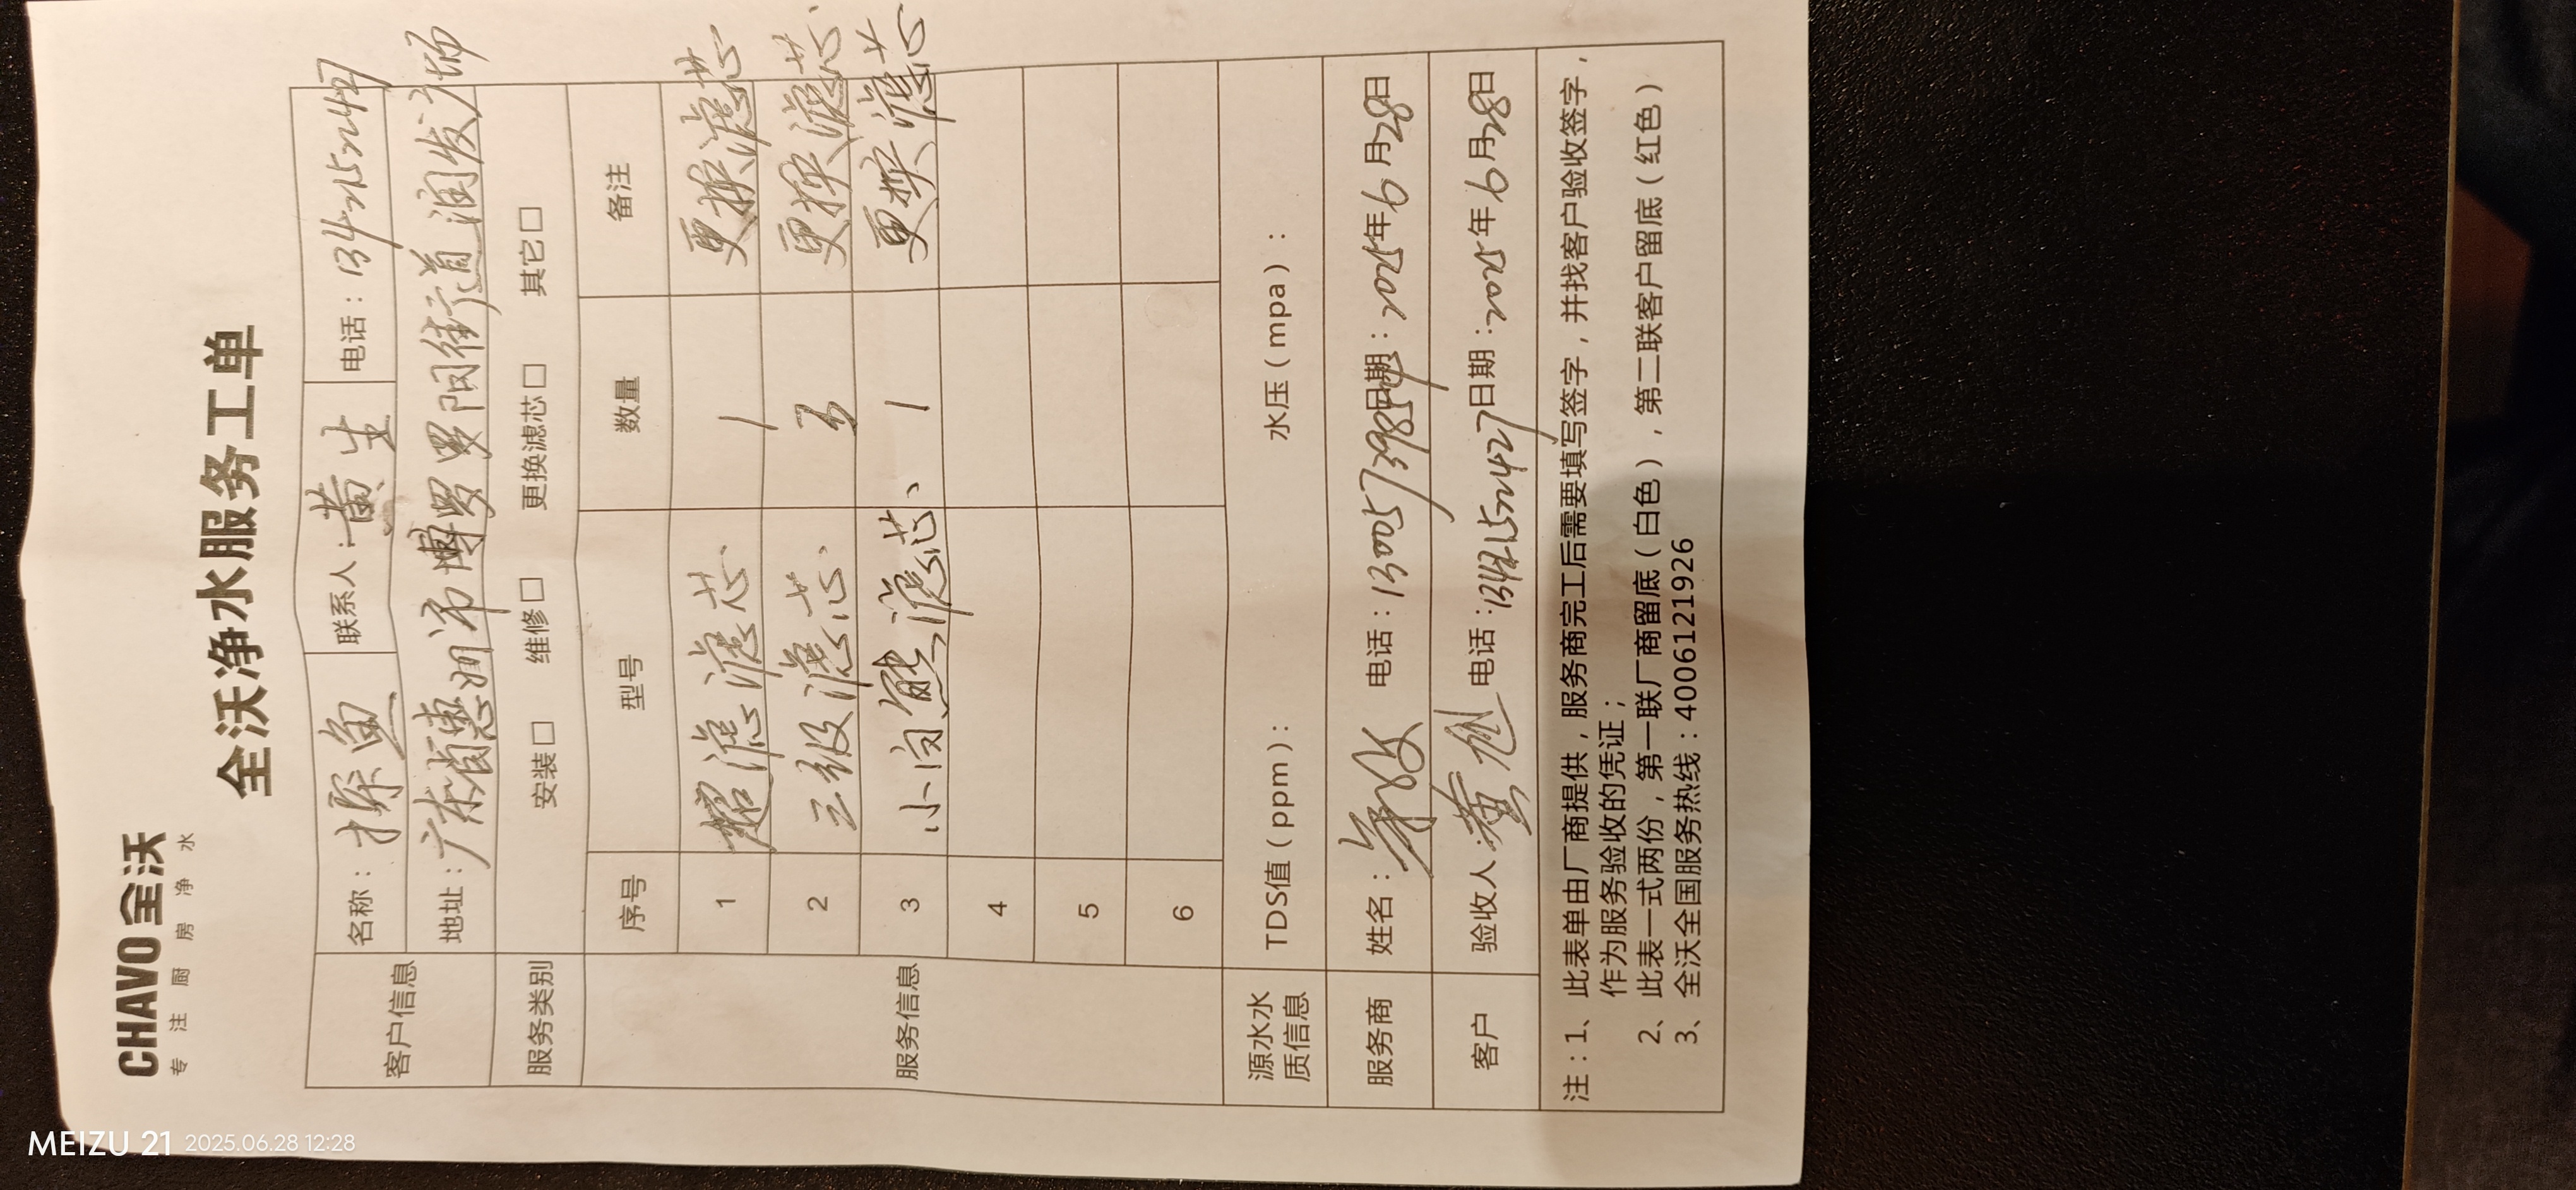 CHAVO 全沃
专注厨房净水
全沃净水服务工单
客户信息 名称：探鱼 联系人：黄生 电话：13421522427
地址：广东省惠州市博罗罗阳街道润发广场
服务类别 安装□ 维修□ 更换滤芯□ 其它□
服务信息 序号 型号 数量 备注
1 超滤滤芯 1 更换滤芯
2 三级滤芯 3 更换滤芯
3 小白熊滤芯、 1 更换滤芯
4
5
6
源水水质信息 TDS值（ppm）： 水压（mpa）：
服务商 姓名： 电话： 日期：2025年6月28日
客户 验收人：黄旭 电话：13421522427 日期：2025年6月28日
注：1、此表单由厂商提供，服务商完工后需要填写签字，并找客户验收签字，
作为服务验收的凭证；
2、此表一式两份，第一联厂商留底（白色），第二联客户留底（红色）
3、全沃全国服务热线：4006121926
MEIZU 21 2025.06.28 12:28